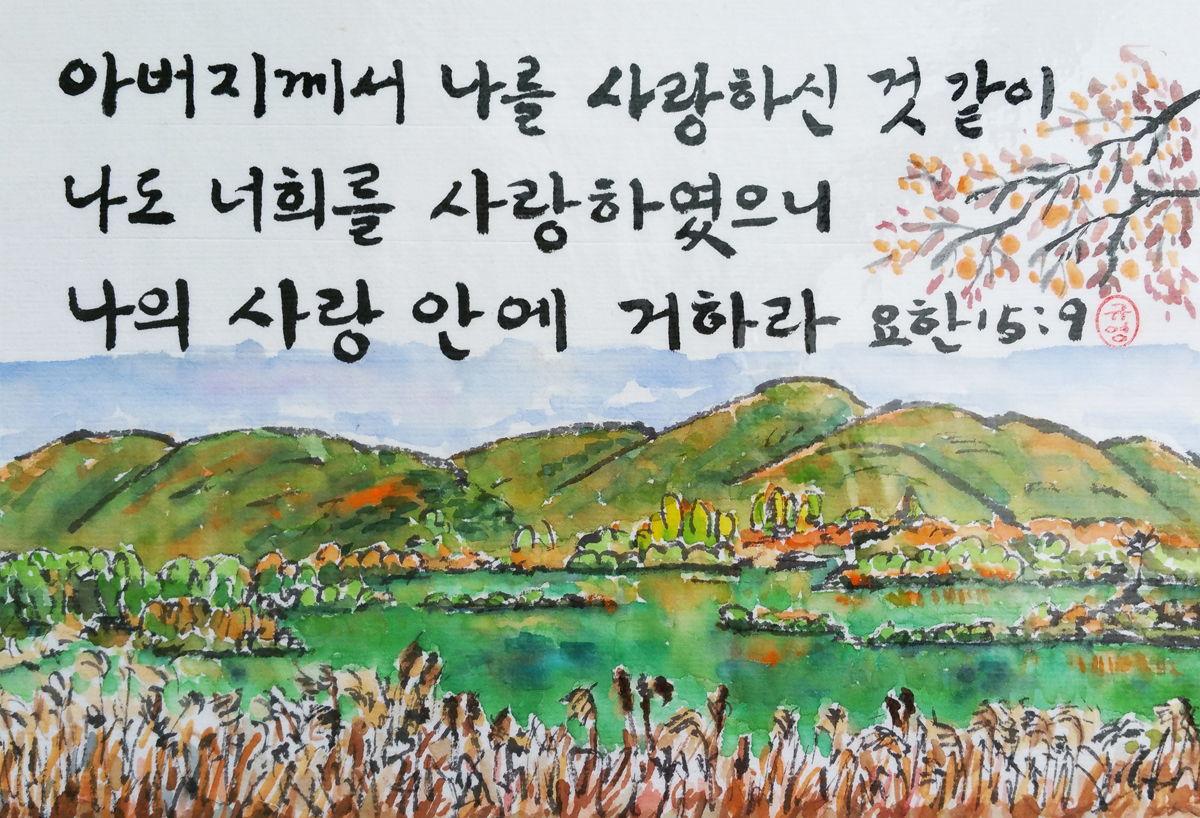 아버지께서 나를 사랑하신 것 같이
나도 너희를 사랑하였으니
나의 사랑 안에 거하라 요한 15:9
규영